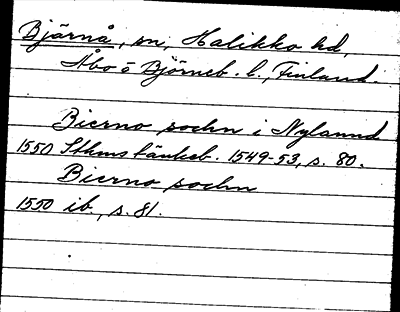 Bjärnå, sn, Halikko hd,
Åbo o Björneb. l., Finland.
Bierno sochn i Nylannd
1550 Sthms tänkeb. 1549-53, s. 80.
Bierno sochn
1550 ib., s. 81.